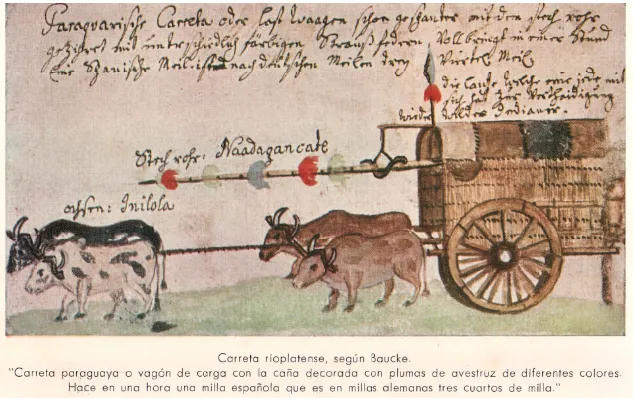 Paraquarische Carreta oder last waagen schon gespanter mit dem stech rohr
gezihret mit unterschidlich färbigen Strauß federn Vollbringt in einer Stund
Eine Spanische Meil: ist nach deutschen Meilen drey Viertel Meil.
die Lanze welche eine jede mit
sich hat zur Vertheidigung
wieder Indianer.
Stech rohr: Naadagancate
ochsen: Inilola
Carreta rioplatense, según Baucke.
"Carreta paraguaya o vagón de carga con la caña decorada con plumas de avestruz de diferentes colores.
Hace en una hora una milla española que es en millas alemanas tres cuartos de milla."